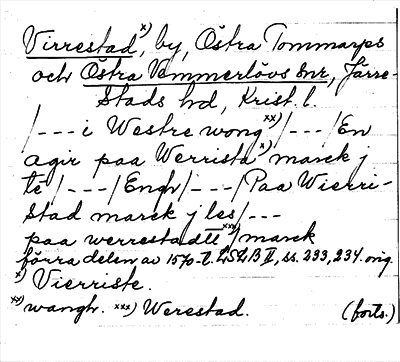 Virrestad x), by, Östra Tommarps
och Östra Vemmerlövs snr, Järre-
stads hd, Krist. l.
/--- i Westre wong xx) /---/ En
agir paa Werrista x) marck j
té /---/ Engh /---/ Paa Wierri-
stad marck j les /---
paa werrestadtt xxx) marck
förra delen av 1570-t. LSLB II, ss. 233, 234. orig
x) Vierriste.
xx) wangh. xxx) Werestad. (forts.)